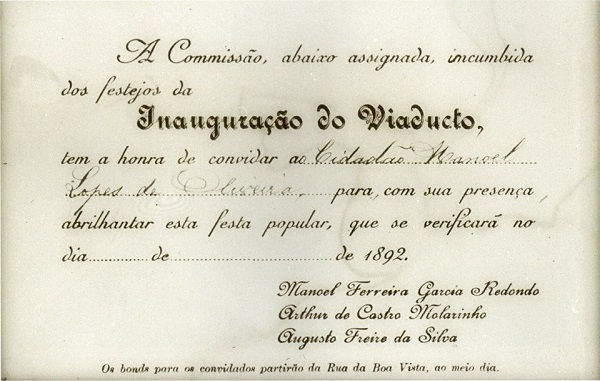 A Commissão, abaixo assignada, incumbida
dos festejos da
Inauguração do Viaducto,
tem a honra de convidar ao Cidadão Manoel
Lopes de Oliveira, para, com sua presença,
abrilhantar esta festa popular, que se verificará no
dia .............. de .............................. de 1892.
Manoel Ferreira Garcia Redondo
Arthur de Castro Molarinho
Augusto Freire da Silva
Os bonds para os convidados partirão da Rua da Boa Vista, ao meio dia.